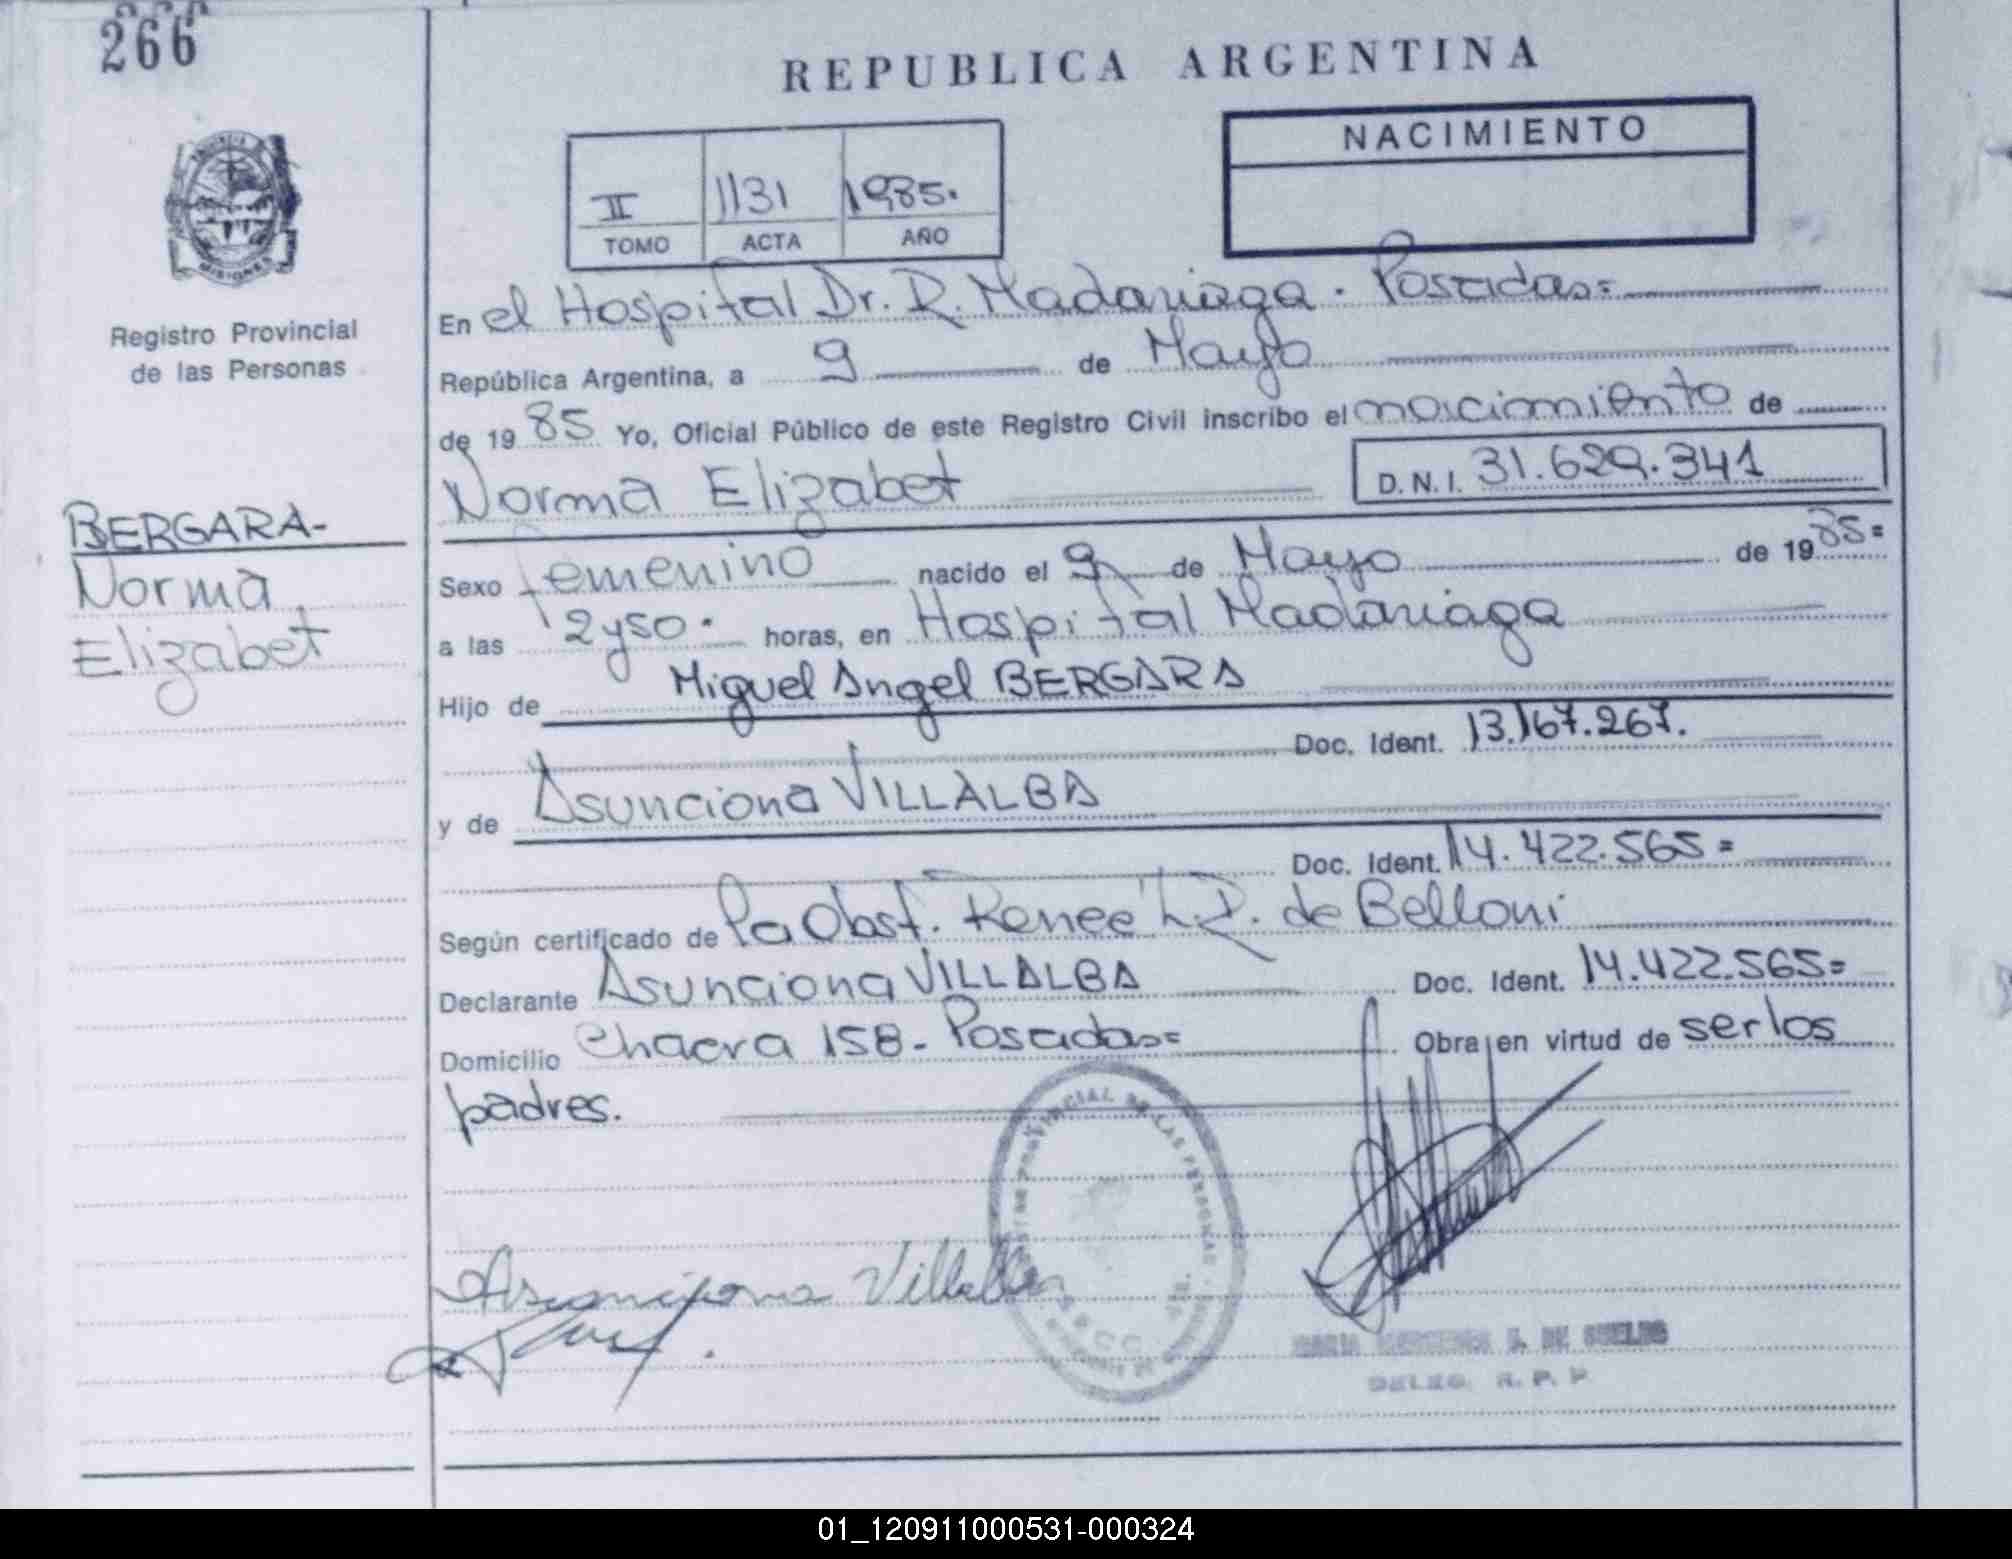 266
REPUBLICA ARGENTINA
NACIMIENTO
II 1131 1985.
TOMO ACTA AÑO
MISIONES
Registro Provincial
de las Personas
BERGARA-
Norma
Elizabet
En el Hospital Dr. R. Madariaga. Posadas=
República Argentina, a 9 de Mayo
de 1985 Yo, Oficial Público de este Registro Civil inscribo el nacimiento de
Norma Elizabet D.N.I. 31.629.341
Sexo femenino nacido el 9 de Mayo de 1985=
a las 12y50. horas, en Hospital Madariaga
Hijo de Miguel Angel BERGARA
Doc. Ident. 13.167.267.
y de Asunciona VILLALBA
Doc. Ident. 14.422.565=
Según certificado de la Obst. Renee L.D. de Belloni
Declarante Asunciona VILLALBA Doc. Ident. 14.422.565=
Domicilio Chacra 158- Posadas= Obra en virtud de ser los
padres.
Asunciona Villalba
DE SUELDO
DELEG. R. P. P.
01_120911000531-000324